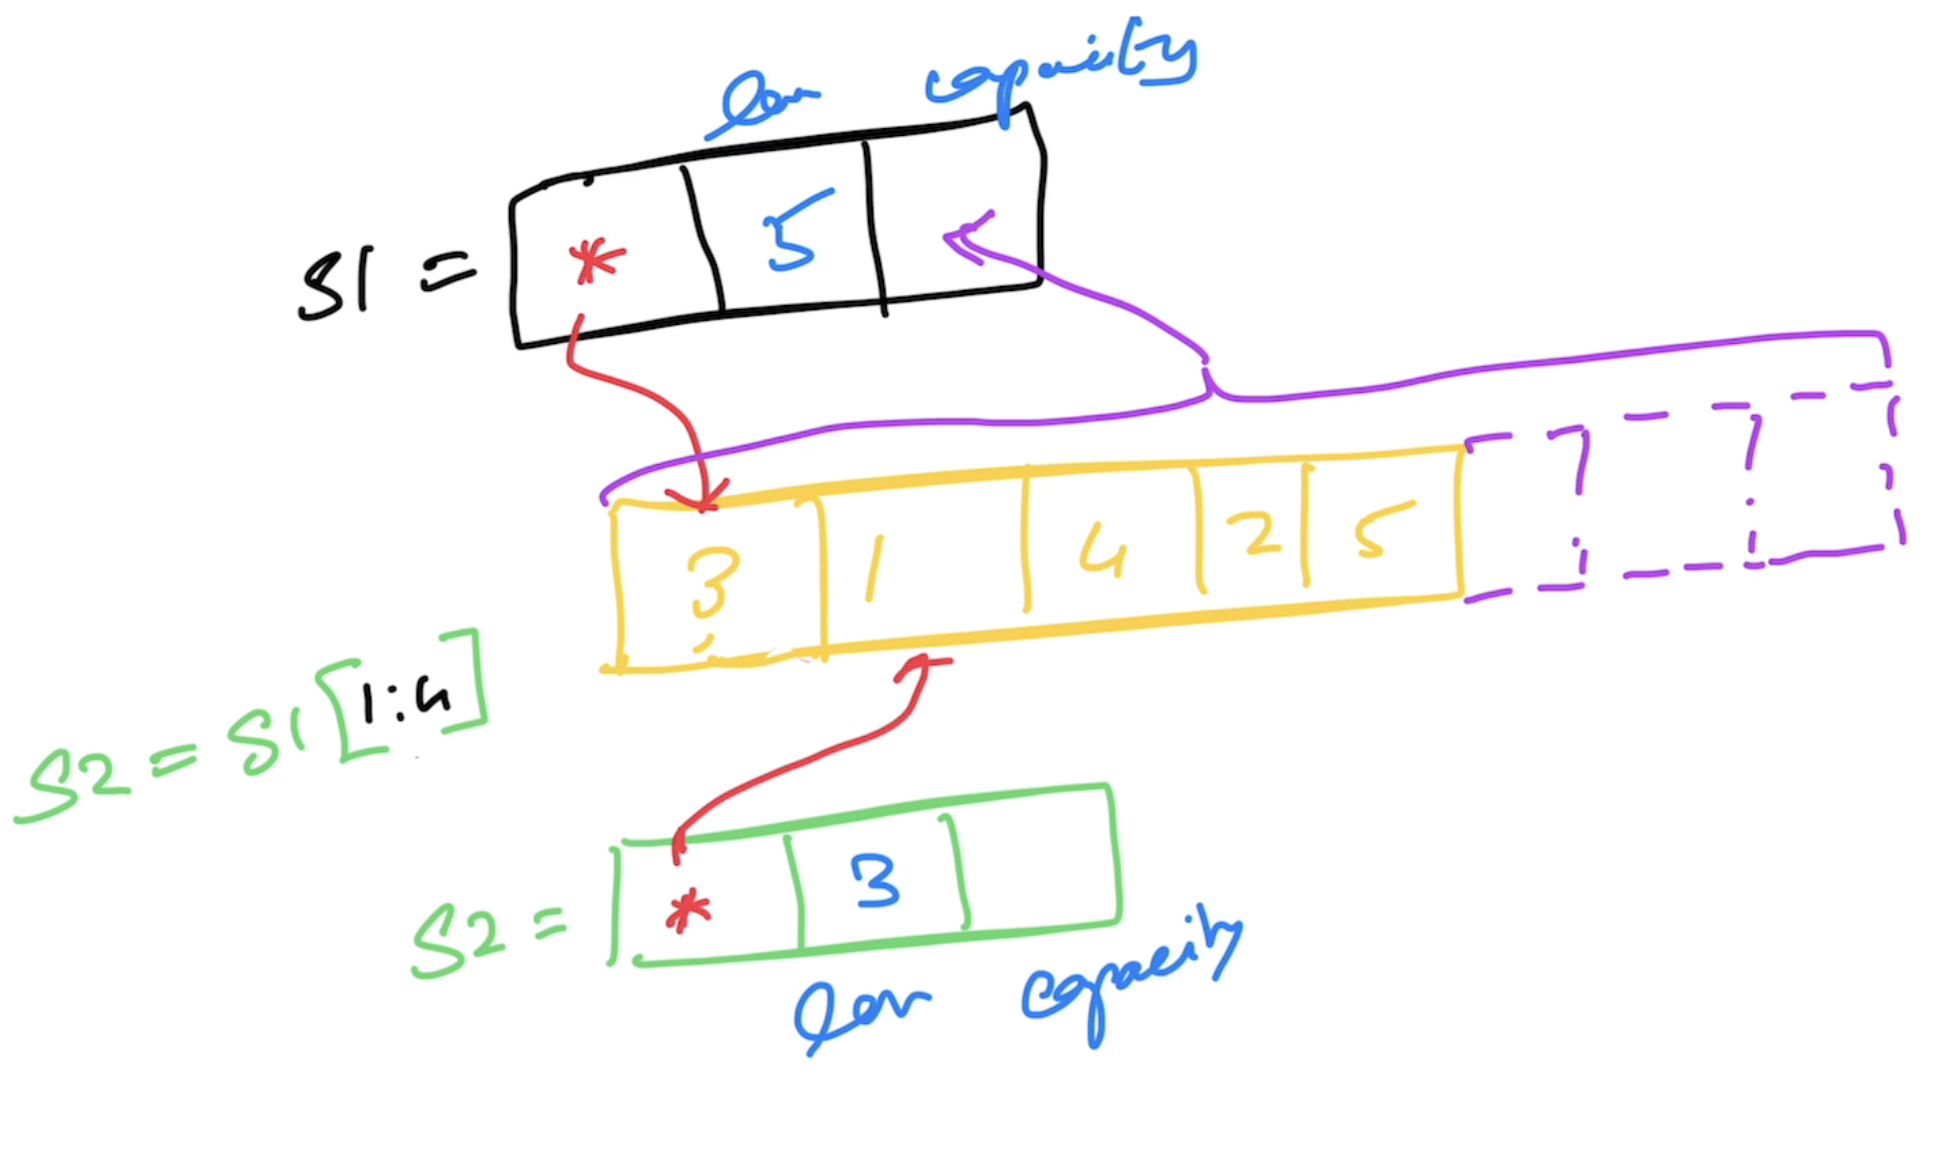 len capacity
S1 = * 5
3 1 4 2 5
S2 = S1[1:4]
S2 = * 3
len capacity